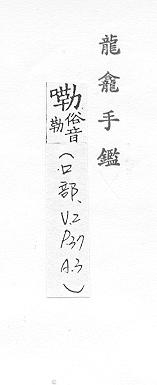 龍龕手鑑
嘞俗音勒
(口部、V.2 P.37 A.3)